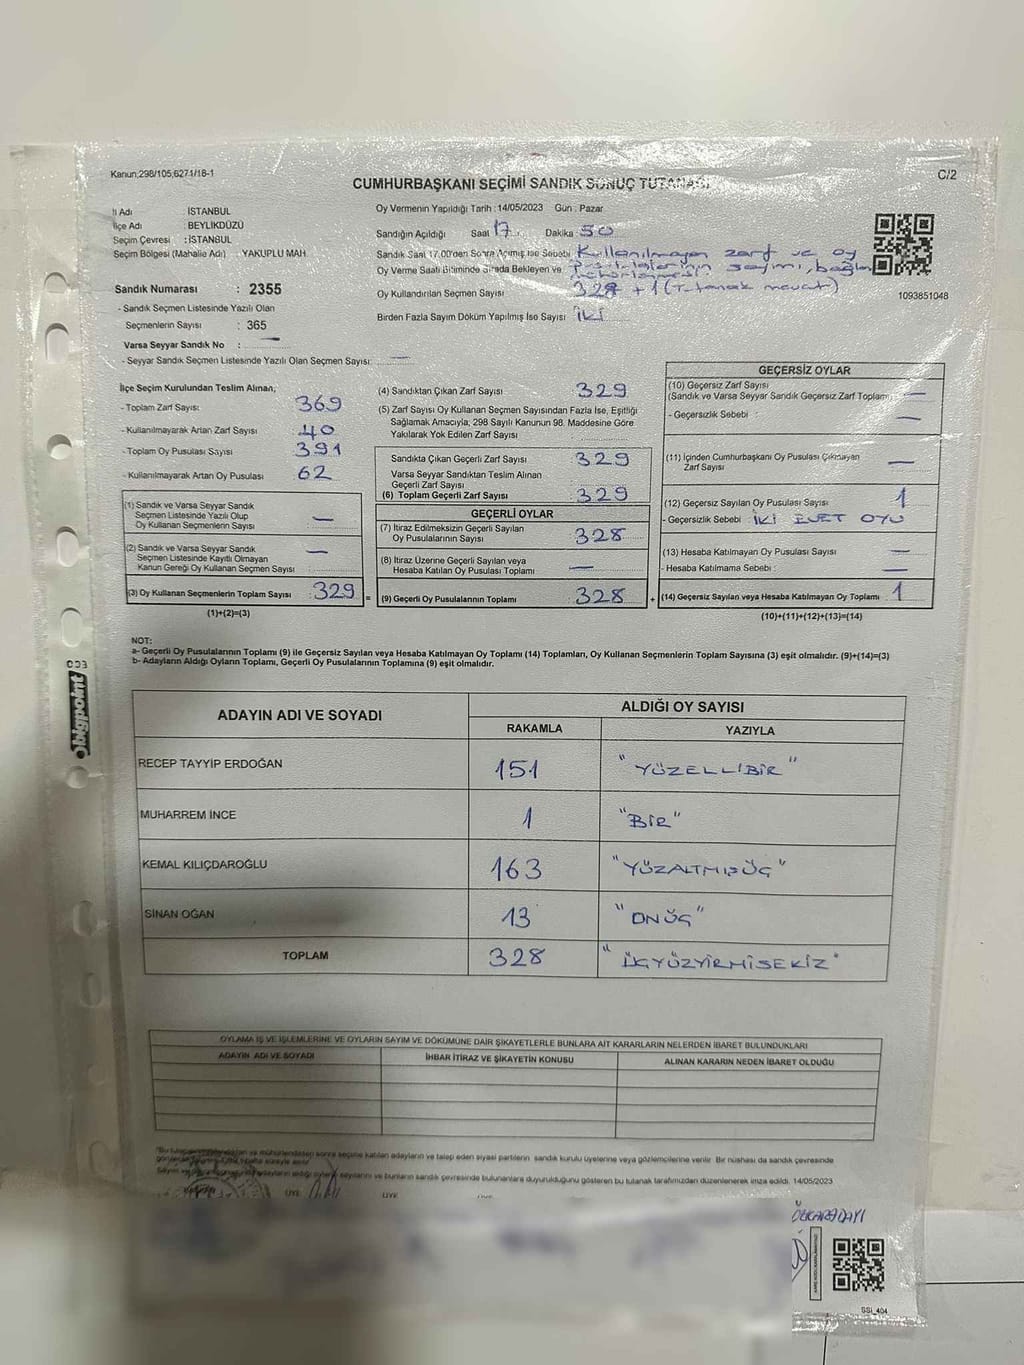 Kanun;298/105,6271/18-1
C/2
CUMHURBAŞKANI SEÇİMİ SANDIK SONUÇ TUTANAĞI
İl Adı İSTANBUL
İlçe Adı : BEYLİKDÜZÜ
Seçim Çevresi : İSTANBUL
Seçim Bölgesi (Mahalle Adı) YAKUPLU MAH
Sandık Numarası : 2355
- Sandık Seçmen Listesinde Yazılı Olan
Seçmenlerin Sayısı : 365
Varsa Seyyar Sandık No : —
- Seyyar Sandık Seçmen Listesinde Yazılı Olan Seçmen Sayısı: —
Oy Vermenin Yapıldığı Tarih : 14/05/2023 Gün : Pazar
Sandığın Açıldığı Saat 17 Dakika 50
Sandık Saat 17.00'den Sonra Açılmış İse Sebebi Kullanılmayan zarf ve oy
Oy Verme Saati Bitiminde Sırada Bekleyen ve sayımı,
Oy Kullandırılan Seçmen Sayısı 328 + 1 (Tutanak mevcut)
Birden Fazla Sayım Döküm Yapılmış İse Sayısı İKİ
1093851048
İlçe Seçim Kurulundan Teslim Alınan;
- Toplam Zarf Sayısı 369
- Kullanılmayarak Artan Zarf Sayısı 40
- Toplam Oy Pusulası Sayısı 391
- Kullanılmayarak Artan Oy Pusulası 62
(1) Sandık ve Varsa Seyyar Sandık
Seçmen Listesinde Yazılı Olup
Oy Kullanan Seçmenlerin Sayısı —
(2) Sandık ve Varsa Seyyar Sandık
Seçmen Listesinde Kayıtlı Olmayan
Kanun Gereği Oy Kullanan Seçmen Sayısı —
(3) Oy Kullanan Seçmenlerin Toplam Sayısı 329 =
(1)+(2)=(3)
(4) Sandıktan Çıkan Zarf Sayısı 329
(5) Zarf Sayısı Oy Kullanan Seçmen Sayısından Fazla İse, Eşitliği
Sağlamak Amacıyla; 298 Sayılı Kanunun 98. Maddesine Göre
Yakılarak Yok Edilen Zarf Sayısı
Sandıkta Çıkan Geçerli Zarf Sayısı 329
Varsa Seyyar Sandıktan Teslim Alınan
Geçerli Zarf Sayısı
(6) Toplam Geçerli Zarf Sayısı 329
GEÇERLİ OYLAR
(7) İtiraz Edilmeksizin Geçerli Sayılan
Oy Pusulalarının Sayısı 328
(8) İtiraz Üzerine Geçerli Sayılan veya
Hesaba Katılan Oy Pusulası Toplamı —
(9) Geçerli Oy Pusulalarının Toplamı 328 +
GEÇERSİZ OYLAR
(10) Geçersiz Zarf Sayısı
(Sandık ve Varsa Seyyar Sandık Geçersiz Zarf Toplamı —
- Geçersizlik Sebebi : —
(11) İçinden Cumhurbaşkanı Oy Pusulası Çıkmayan
Zarf Sayısı —
(12) Geçersiz Sayılan Oy Pusulası Sayısı 1
- Geçersizlik Sebebi İKİ EVET OYU
(13) Hesaba Katılmayan Oy Pusulası Sayısı —
- Hesaba Katılmama Sebebi : —
(14) Geçersiz Sayılan veya Hesaba Katılmayan Oy Toplamı 1
(10)+(11)+(12)+(13)=(14)
NOT:
a- Geçerli Oy Pusulalarının Toplamı (9) ile Geçersiz Sayılan veya Hesaba Katılmayan Oy Toplamı (14) Toplamları, Oy Kullanan Seçmenlerin Toplam Sayısına (3) eşit olmalıdır. (9)+(14)=(3)
b- Adayların Aldığı Oyların Toplamı, Geçerli Oy Pusulalarının Toplamına (9) eşit olmalıdır.
003
bigpoint
ADAYIN ADI VE SOYADI
ALDIĞI OY SAYISI
RAKAMLA
YAZIYLA
RECEP TAYYİP ERDOĞAN 151 "YÜZELLİBİR"
MUHARREM İNCE 1 "BİR"
KEMAL KILIÇDAROĞLU 163 "YÜZALTMIŞÜÇ"
SİNAN OĞAN 13 "ONÜÇ"
TOPLAM 328 "ÜÇYÜZYİRMİSEKİZ"
OYLAMA İŞ VE İŞLEMLERİNE VE OYLARIN SAYIM VE DÖKÜMÜNE DAİR ŞİKAYETLERLE BUNLARA AİT KARARLARIN NELERDEN İBARET BULUNDUKLARI
ADAYIN ADI VE SOYADI
İHBAR İTİRAZ VE ŞİKAYETİN KONUSU
ALINAN KARARIN NEDEN İBARET OLDUĞU
sonra seçime katılan adayların ve talep eden siyasi partilerin sandık kurulu üyelerine veya gözlemcilerine verilir. Bir nüshası da sandık çevresinde
sayılarını ve bunların sandık çevresinde bulunanlara duyurulduğunu gösteren bu tutanak tarafımızdan düzenlenerek imza edildi. 14/05/2023
ÜYE ÜYE
SSi_404